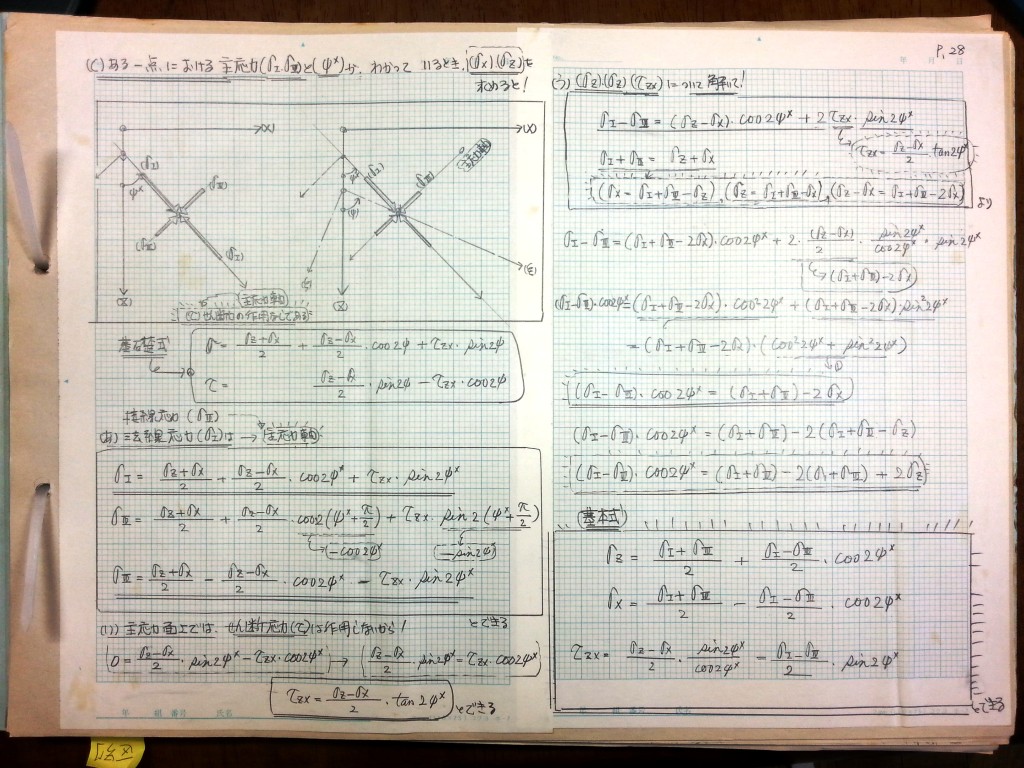 P. 28
(C) ある一点における主応力(σI σIII)と(ψˣ)が、わかっているとき,(σx)(σz)を
求めると!
(X)
(σI)
ψˣ
(σIII)
(σIII)
(σI)
(Z)
(X)
主応力軸
(σI)
ψˣ
(σIII)
(ψ)
(ξ)
(Z)
(主応力軸)
基礎式
σ = (σz+σx)/2 + (σz−σx)/2 · cos2ψ + τzx · sin2ψ
τ = (σz−σx)/2 · sin2ψ − τzx · cos2ψ
接線応力 (σIII)
(あ) 法線応力(σI)は → 主応力軸
σI = (σz+σx)/2 + (σz−σx)/2 · cos2ψˣ + τzx · sin2ψˣ
σIII = (σz+σx)/2 + (σz−σx)/2 · cos2(ψˣ+π/2) + τzx · sin2(ψˣ+π/2)
(−cos2ψˣ) (−sin2ψˣ)
σIII = (σz+σx)/2 − (σz−σx)/2 · cos2ψˣ − τzx · sin2ψˣ
とできる
(い) 主応力面上では、せん断応力(τ)は作用しないから!
(0 = (σz−σx)/2 · sin2ψˣ − τzx · cos2ψˣ) → ((σz−σx)/2 · sin2ψˣ = τzx · cos2ψˣ)
τzx = (σz−σx)/2 · tan2ψˣ とできる
(う) (σz)(σz)(τzx)について解いて!
σI−σIII = (σz−σx) · cos2ψˣ + 2τzx · sin2ψˣ
τzx = (σz−σx)/2 tan2ψˣ
σI+σIII = σz+σx
(σx = σI+σIII−σz), (σz = σI+σIII−σx), (σz−σx = σI+σIII−2σx)
より
σI−σIII = (σI+σIII−2σx) · cos2ψˣ + 2 · (σz−σx)/2 · sin2ψˣ/cos2ψˣ · sin2ψˣ
→ (σI+σIII)−2σx)
(σI−σIII) · cos2ψˣ = (σI+σIII−2σx) · cos²2ψˣ + (σI+σIII−2σx) · sin²2ψˣ
= (σI+σIII−2σx) · (cos²2ψˣ + sin²2ψˣ)
(σI−σIII) · cos2ψˣ = (σI+σIII)−2σx
(σI−σIII) · cos2ψˣ = (σI+σIII)−2(σI+σIII−σz)
(σI−σIII) · cos2ψˣ = (σI+σIII)−2(σI+σIII) + 2σz
(基本式)
σz = (σI+σIII)/2 + (σI−σIII)/2 · cos2ψˣ
σx = (σI+σIII)/2 − (σI−σIII)/2 · cos2ψˣ
τzx = (σz−σx)/2 · sin2ψˣ/cos2ψˣ = (σI−σIII)/2 · sin2ψˣ
とできる
年 組 番号 氏名